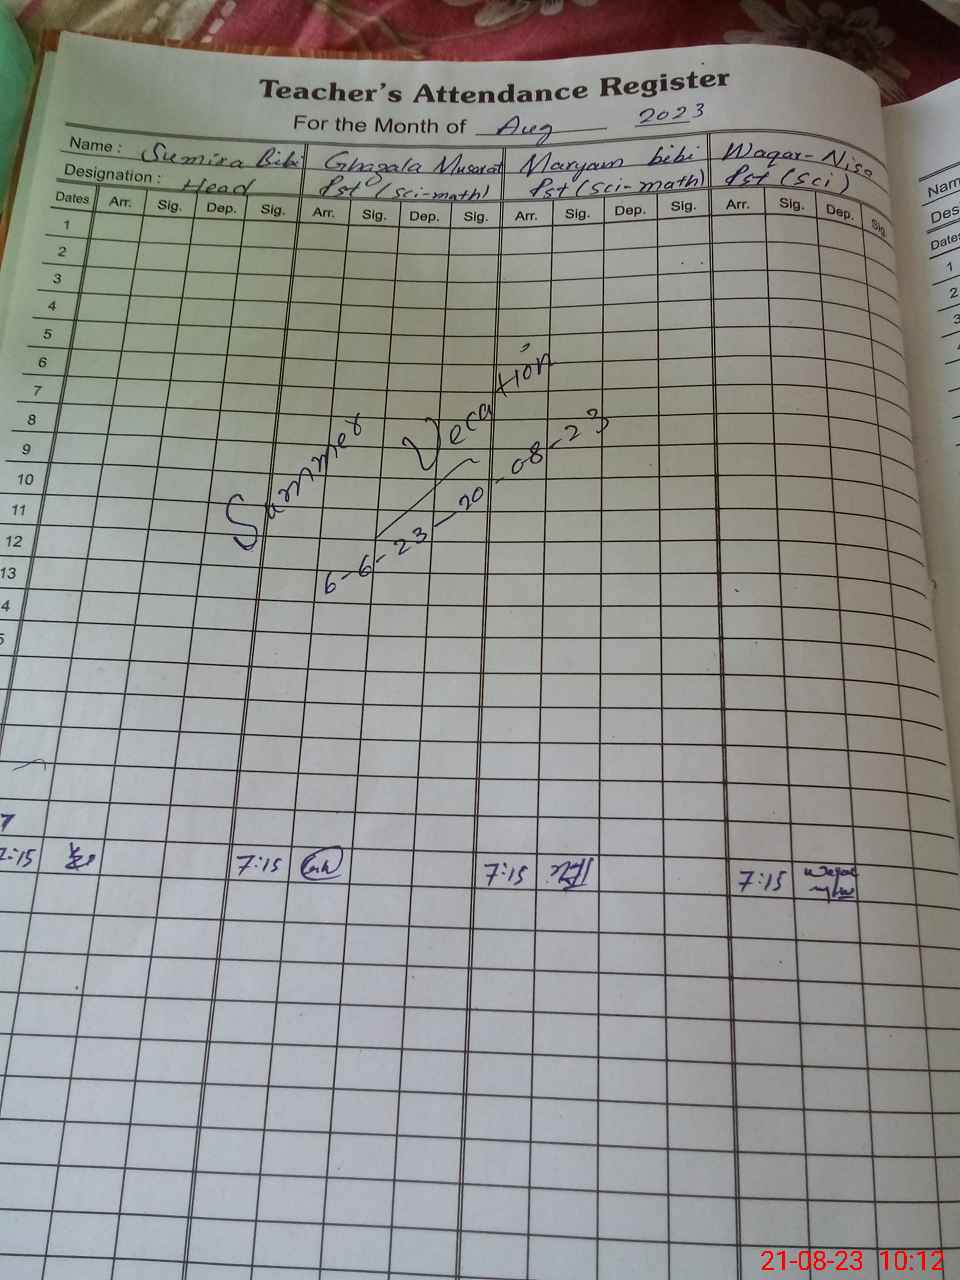 Teacher's Attendance Register
For the Month of Aug 2023
Name : Sumira Bibi Ghazala Musarat Maryam bibi Waqar-Nisa
Designation : Head Pst (sci-math) Pst (sci-math) Pst (sci)
Dates Arr. Sig. Dep. Sig. Arr. Sig. Dep. Sig. Arr. Sig. Dep. Sig. Arr. Sig. Dep. Sig.
1
2
3
4
5
6
7
8
9
10
11
12
13
4
5
Summer Vecation
6-6-23 - 20-08-23
7:15 7:15 7:15 7:15
Nam
Des
Date
1
2
3
21-08-23 10:12